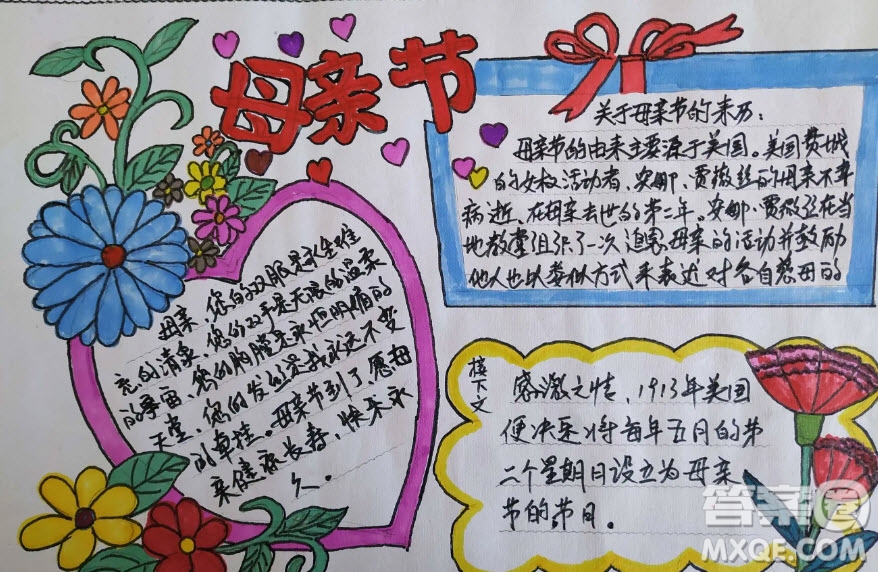 母亲节
关于母亲节的来历：
母亲节的由来主要源于美国。美国费城
的女权活动者、安娜、贾薇丝的母亲不幸
病逝，在母亲去世的第二年。安娜·贾薇丝在当
地教堂组织了一次追思母亲的活动并鼓励
他人也以类似方式来表达对各自慈母的
母亲，您的双眼是永生难
忘的清泉，您的双手是无限的温柔
的宇宙，您的胸膛是永恒明媚的
天堂，您的发丝是我永远不变
的牵挂。母亲节到了，愿母
亲健康长寿，快乐永
久。
接下文
感激之情，1913年美国
便决定将每年五月的第
二个星期日设立为母亲
节的节日。
答案圈
MXQE.COM